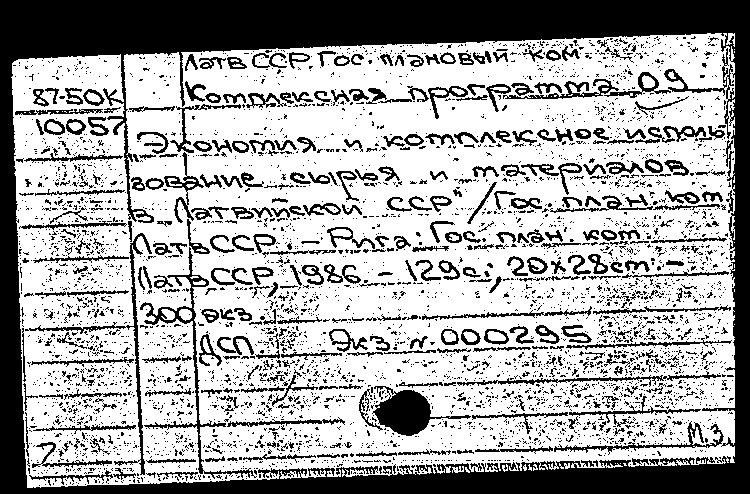 ЛатвССР. Гос. плановый ком.
87-50К Комплексная программа 09
10057 "Экономия и комплексное исполь
зование сырья и материалов
в Латвийской ССР" / Гос. план. ком.
ЛатвССР. – Рига: Гос. план. ком.
ЛатвССР, 1986. – 129с.; 20×28см. –
300 экз.
ДСП. Экз. №000295
М.З.